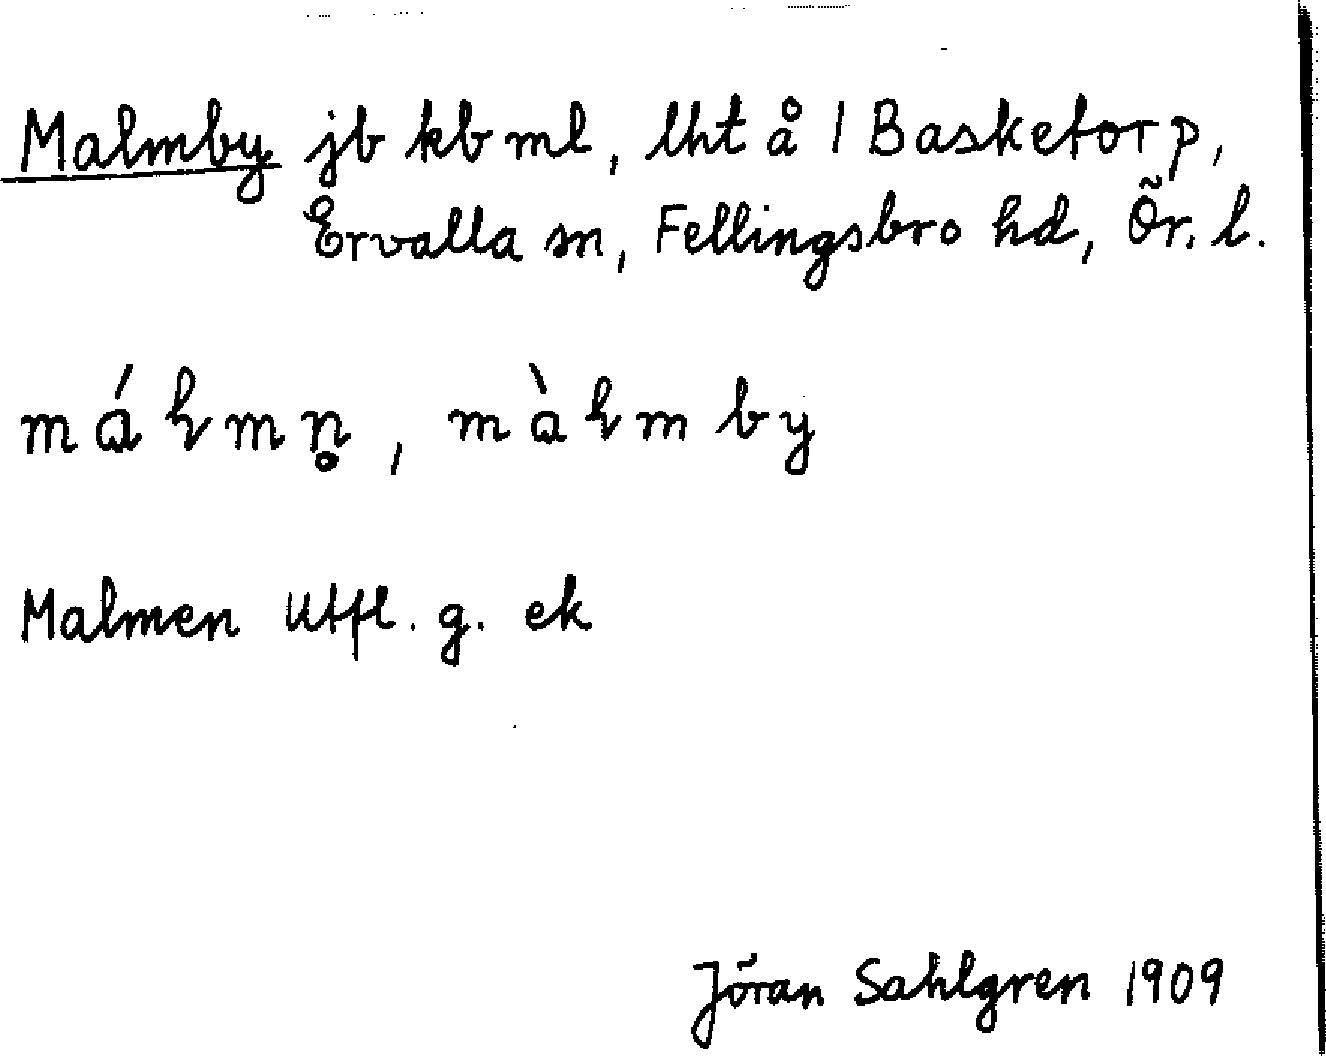 Malmby jb kb ml, lht å 1 Basketorp,
Ervalla sn, Fellingsbro hd, Ör. l.
máɫmn̥, màɫmby
Malmen utfl. g. ek
Jöran Sahlgren 1909